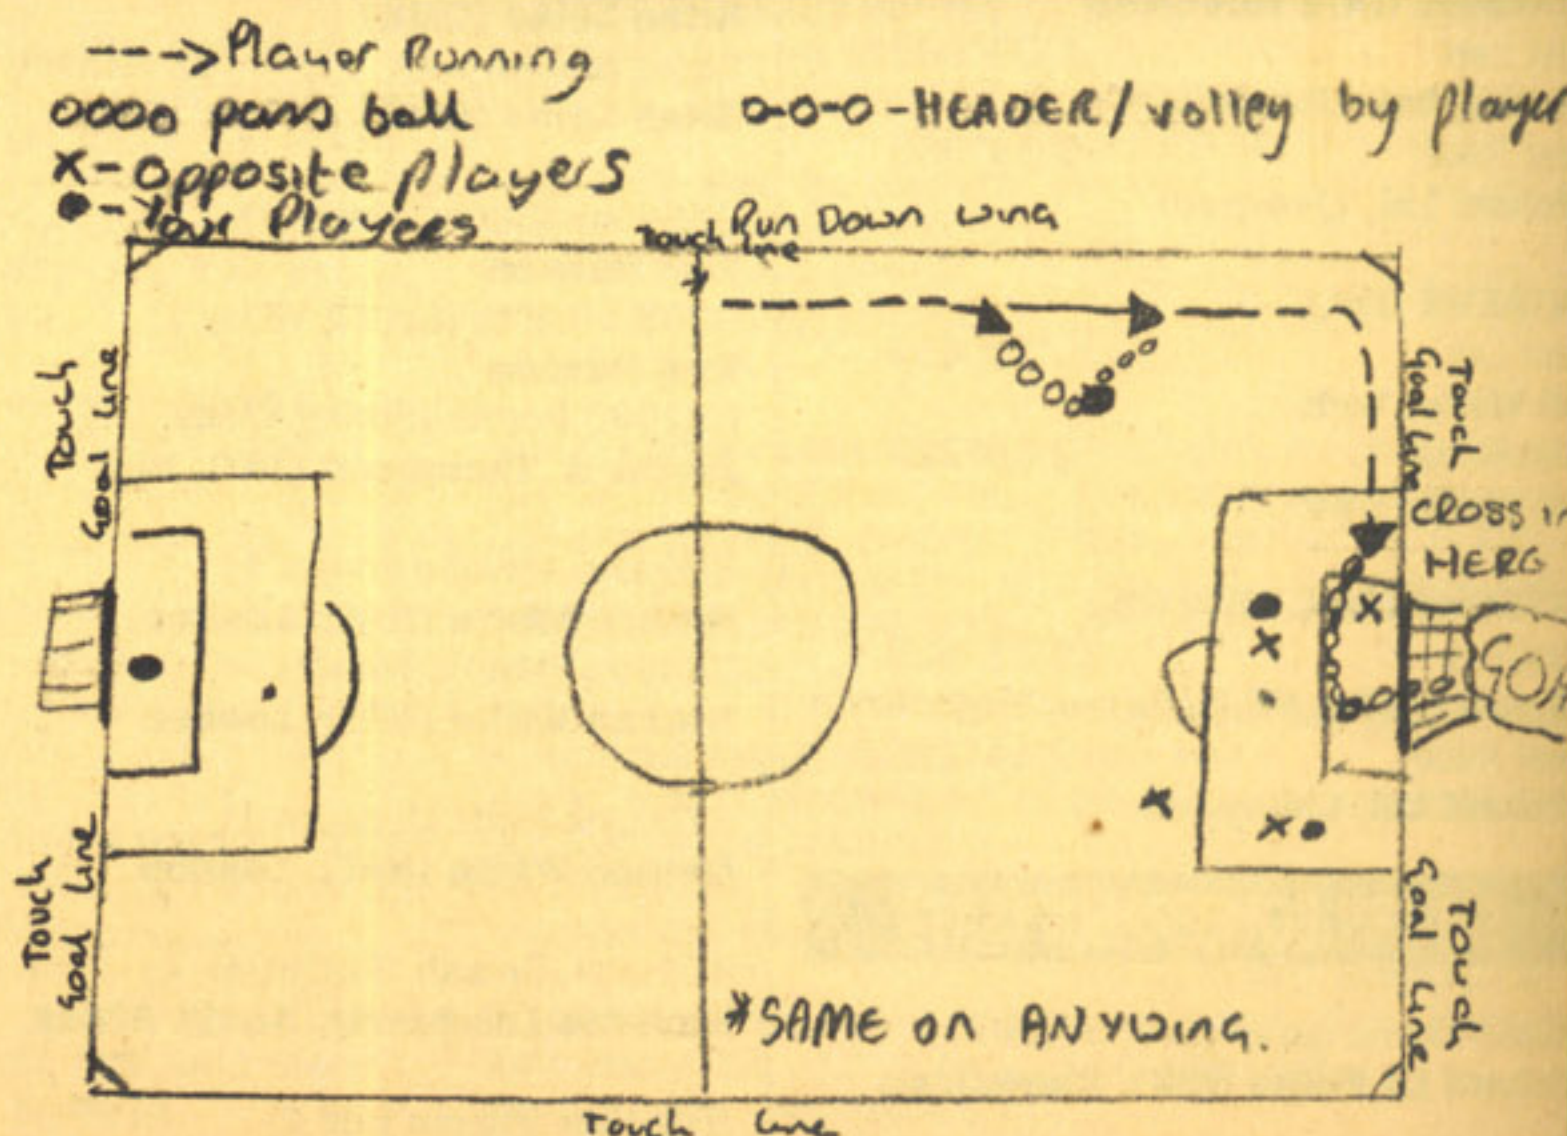 ---> Player Running
oooo pass ball
o-o-o - HEADER/volley by player
x - opposite players
● - Your Players
Touch line
Run Down wing
Touch
Goal line
Touch
Goal line
CROSS in
HERE
GOA
Touch
Goal line
Touch
Goal line
*SAME on ANY WING.
Touch line